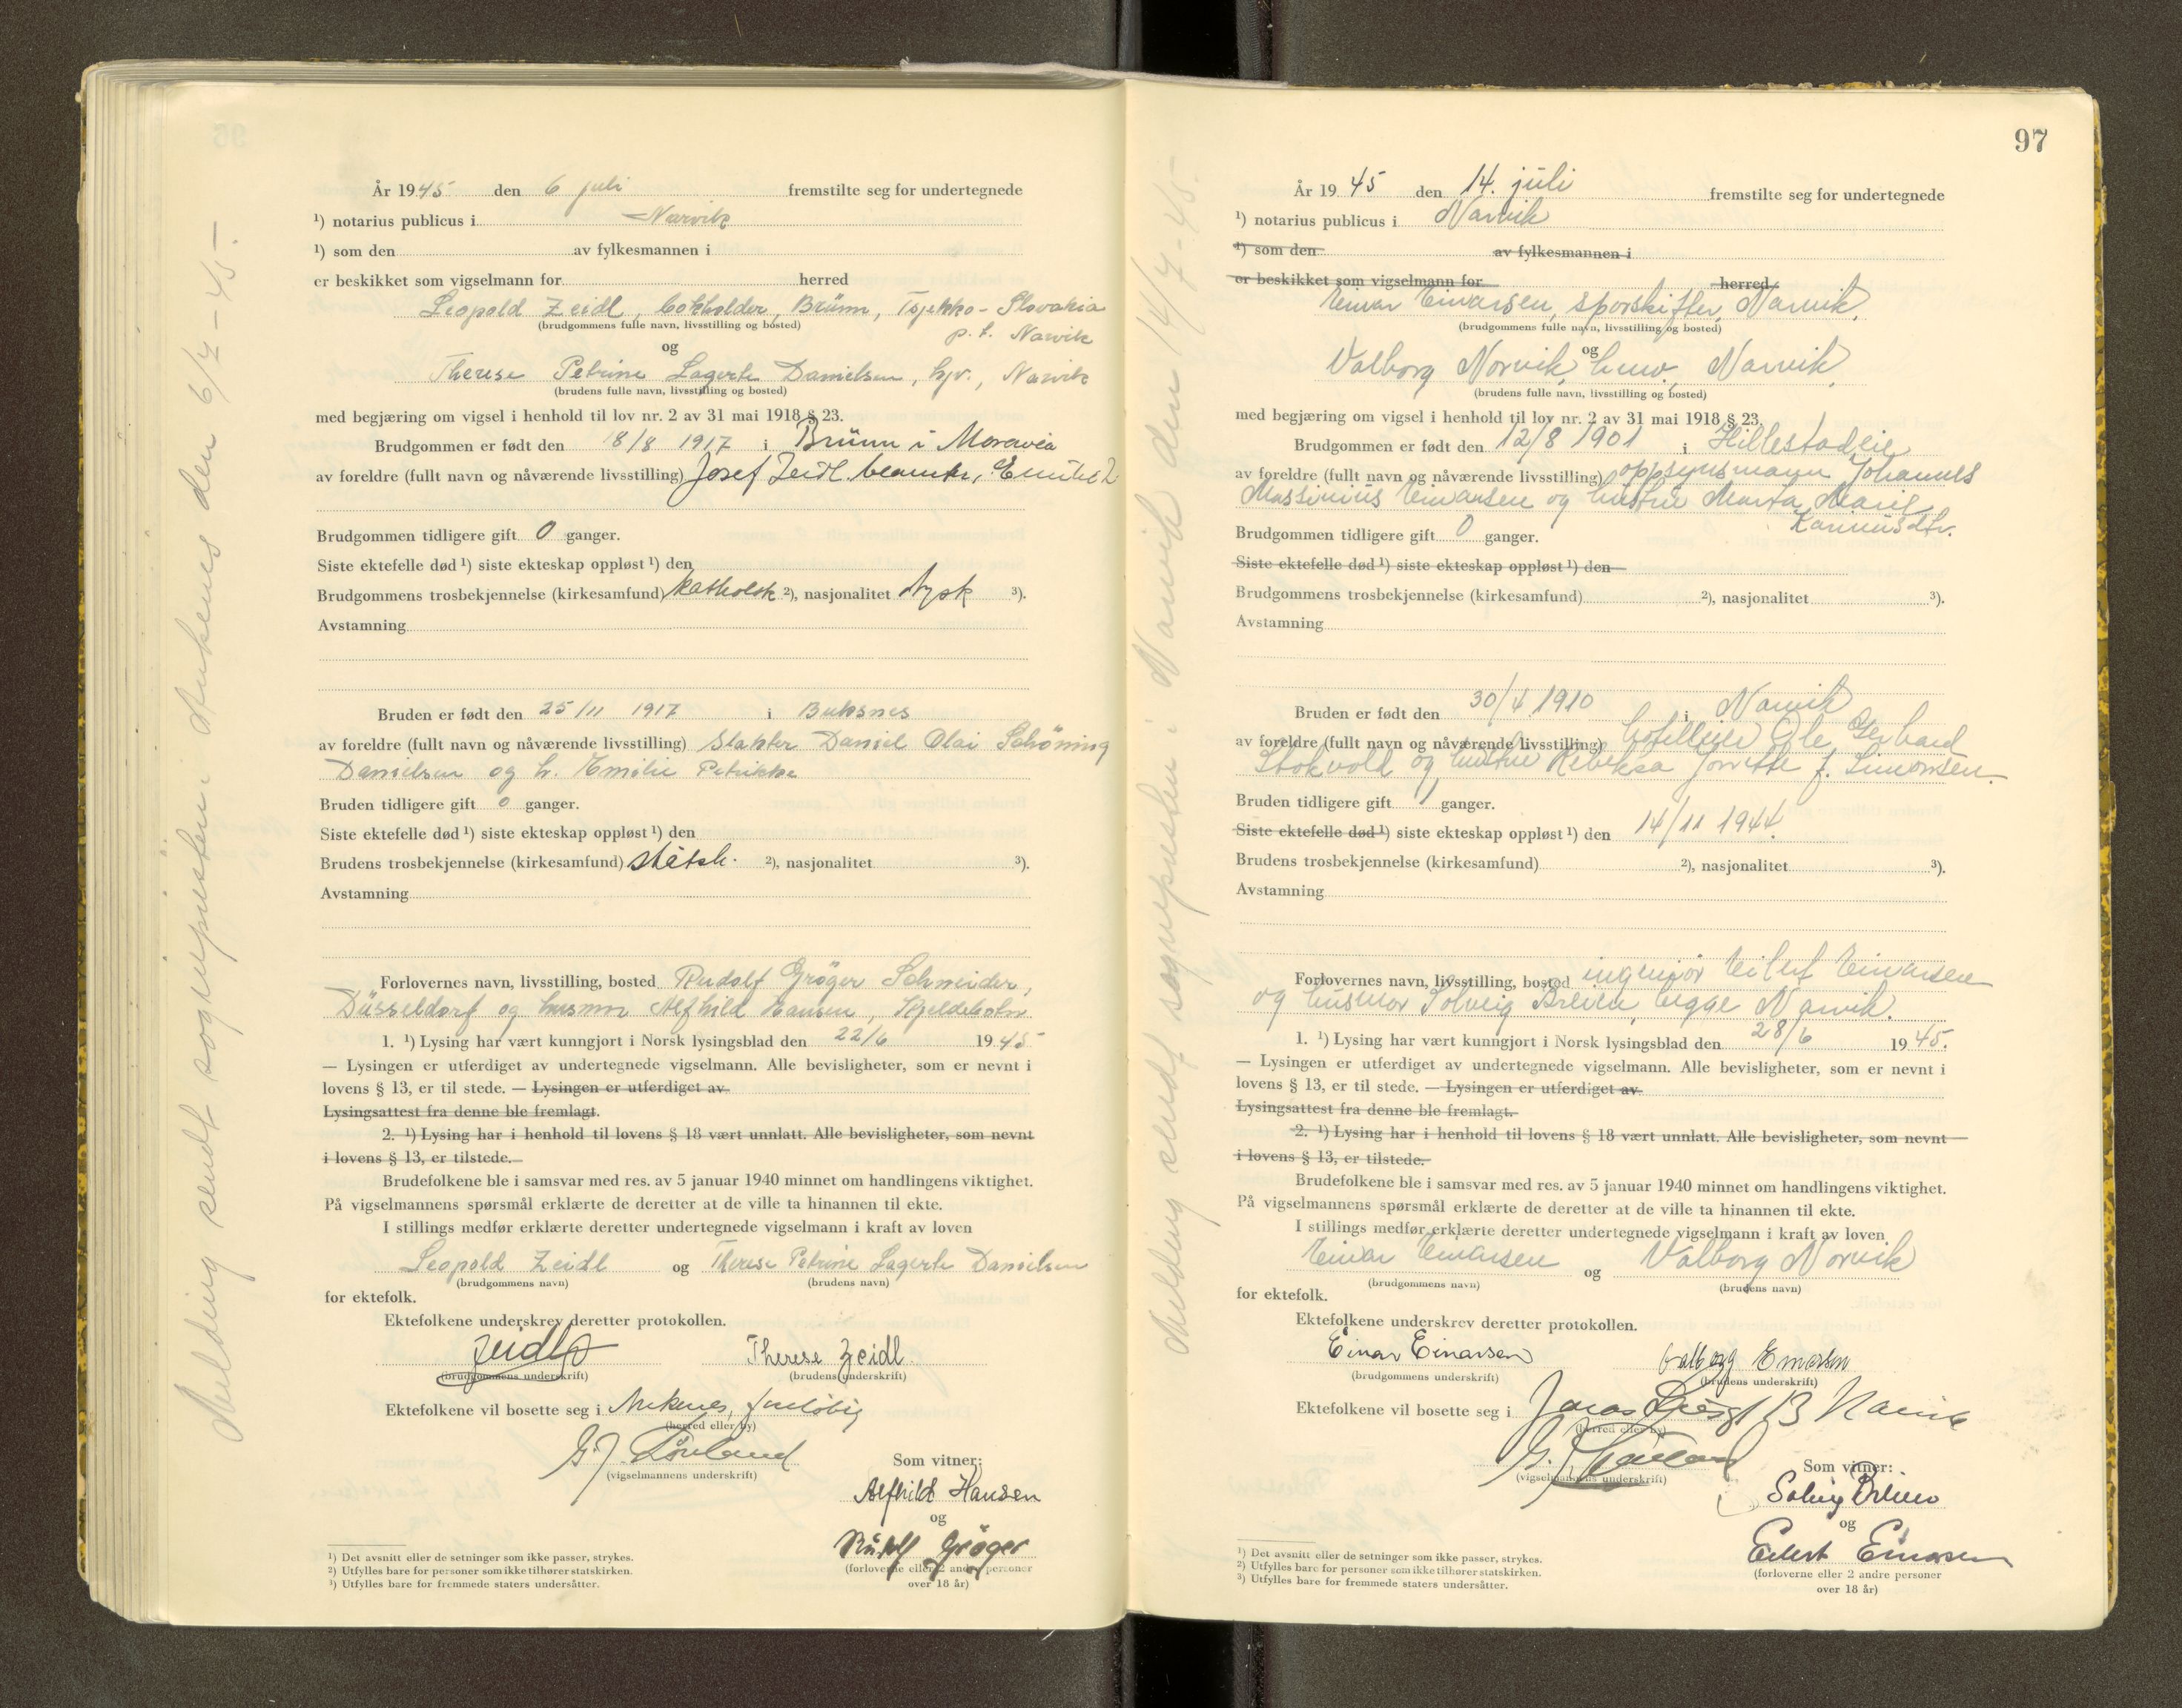 År 1945 den 6 juli fremstilte seg for undertegnede
¹) notarius publicus i Narvik
¹) som den av fylkesmannen i
er beskikket som vigselmann for herred
Leopold Zeidl, bokholder, Brünn, Tsjekko-Slovakia
(brudgommens fulle navn, livsstilling og bosted)
p. t. Narvik
og
Therese Petrine Lagerta Danielsen, hjv., Narvik
(brudens fulle navn, livsstilling og bosted)
med begjæring om vigsel i henhold til lov nr. 2 av 31 mai 1918 § 23.
Brudgommen er født den 8/8 1917 i Brünn i Moravia
av foreldre (fullt navn og nåværende livsstilling) Josef Zeidl, beamter, Emilie Z
Brudgommen tidligere gift 0 ganger.
Siste ektefelle død ¹) siste ekteskap oppløst ¹) den
Brudgommens trosbekjennelse (kirkesamfund) katholsk ²), nasjonalitet tysk ³).
Avstamning
Bruden er født den 25/11 1917 i Buksnes
av foreldre (fullt navn og nåværende livsstilling) slakter Daniel Olai Schöning
Danielsen og h. Emilie Petrikke
Bruden tidligere gift 0 ganger.
Siste ektefelle død ¹) siste ekteskap oppløst ¹) den
Brudens trosbekjennelse (kirkesamfund) statsk. ²), nasjonalitet ³).
Avstamning
Forlovernes navn, livsstilling, bosted Rudolf Gröger Schneider,
Düsseldorf og husmor Alfhild Hansen, Skjeldebotn
1. ¹) Lysing har vært kunngjort i Norsk lysingsblad den 22/6 1945
— Lysingen er utferdiget av undertegnede vigselmann. Alle bevisligheter, som er nevnt i
lovens § 13, er til stede. — Lysingen er utferdiget av
Lysingsattest fra denne ble fremlagt.
2. ¹) Lysing har i henhold til lovens § 18 vært unnlatt. Alle bevisligheter, som nevnt
i lovens § 13, er tilstede. —
Brudefolkene ble i samsvar med res. av 5 januar 1940 minnet om handlingens viktighet.
På vigselmannens spørsmål erklærte de deretter at de ville ta hinannen til ekte.
I stillings medfør erklærte deretter undertegnede vigselmann i kraft av loven
Leopold Zeidl og Therese Petrine Lagerta Danielsen
(brudgommens navn) (brudens navn)
for ektefolk.
Ektefolkene underskrev deretter protokollen.
Zeidl Therese Zeidl
(brudgommens underskrift) (brudens underskrift)
Ektefolkene vil bosette seg i Ankenes,
(herred eller by)
(vigselmannens underskrift)
Som vitner:
Alfhild Hansen
og
Rudolf Gröger
(forloverne eller 2 andre personer
over 18 år)
¹) Det avsnitt eller de setninger som ikke passer, strykes.
²) Utfylles bare for personer som ikke tilhører statskirken.
³) Utfylles bare for fremmede staters undersåtter.
Melding sendt sognepresten i Ankenes den 6/7-45-
97
År 1945 den 14. juli fremstilte seg for undertegnede
¹) notarius publicus i Narvik
¹) som den av fylkesmannen i
er beskikket som vigselmann for herred
Einar Einarsen, sporskifter, Narvik,
(brudgommens fulle navn, livsstilling og bosted)
og
Valborg Norvik, hmv., Narvik,
(brudens fulle navn, livsstilling og bosted)
med begjæring om vigsel i henhold til lov nr. 2 av 31 mai 1918 § 23.
Brudgommen er født den 12/8 1901 i
av foreldre (fullt navn og nåværende livsstilling) oppsynsmann Johannes
Massinius Einarsen og hustru Marta Marie
Brudgommen tidligere gift 0 ganger.
Siste ektefelle død ¹) siste ekteskap oppløst ¹) den
Brudgommens trosbekjennelse (kirkesamfund) ²), nasjonalitet ³).
Avstamning
Bruden er født den 30/4 1910 i Narvik
av foreldre (fullt navn og nåværende livsstilling) hotelleier Ole Gerhard
Stokvold og hustru Rebekka f. Simonsen.
Bruden tidligere gift 1 ganger.
Siste ektefelle død ¹) siste ekteskap oppløst ¹) den 14/11 1944.
Brudens trosbekjennelse (kirkesamfund) ²), nasjonalitet ³).
Avstamning
Forlovernes navn, livsstilling, bosted ingeniør Eilert Einarsen
og husmor Solveig Breivu, begge Narvik.
1. ¹) Lysing har vært kunngjort i Norsk lysingsblad den 28/6 1945.
— Lysingen er utferdiget av undertegnede vigselmann. Alle bevisligheter, som er nevnt i
lovens § 13, er til stede. — Lysingen er utferdiget av
Lysingsattest fra denne ble fremlagt.
2. ¹) Lysing har i henhold til lovens § 18 vært unnlatt. Alle bevisligheter, som nevnt
i lovens § 13, er tilstede.
Brudefolkene ble i samsvar med res. av 5 januar 1940 minnet om handlingens viktighet.
På vigselmannens spørsmål erklærte de deretter at de ville ta hinannen til ekte.
I stillings medfør erklærte deretter undertegnede vigselmann i kraft av loven
Einar Einarsen og Valborg Norvik
(brudgommens navn) (brudens navn)
for ektefolk.
Ektefolkene underskrev deretter protokollen.
Einar Einarsen Valborg Einarsen
(brudgommens underskrift) (brudens underskrift)
Ektefolkene vil bosette seg i Narvik
(herred eller by)
(vigselmannens underskrift)
Som vitner:
Solveig
og
Eilert Einarsen
(forloverne eller 2 andre personer
over 18 år)
¹) Det avsnitt eller de setninger som ikke passer, strykes.
²) Utfylles bare for personer som ikke tilhører statskirken.
³) Utfylles bare for fremmede staters undersåtter.
Melding sendt sognepresten i Narvik den 14/7-45.